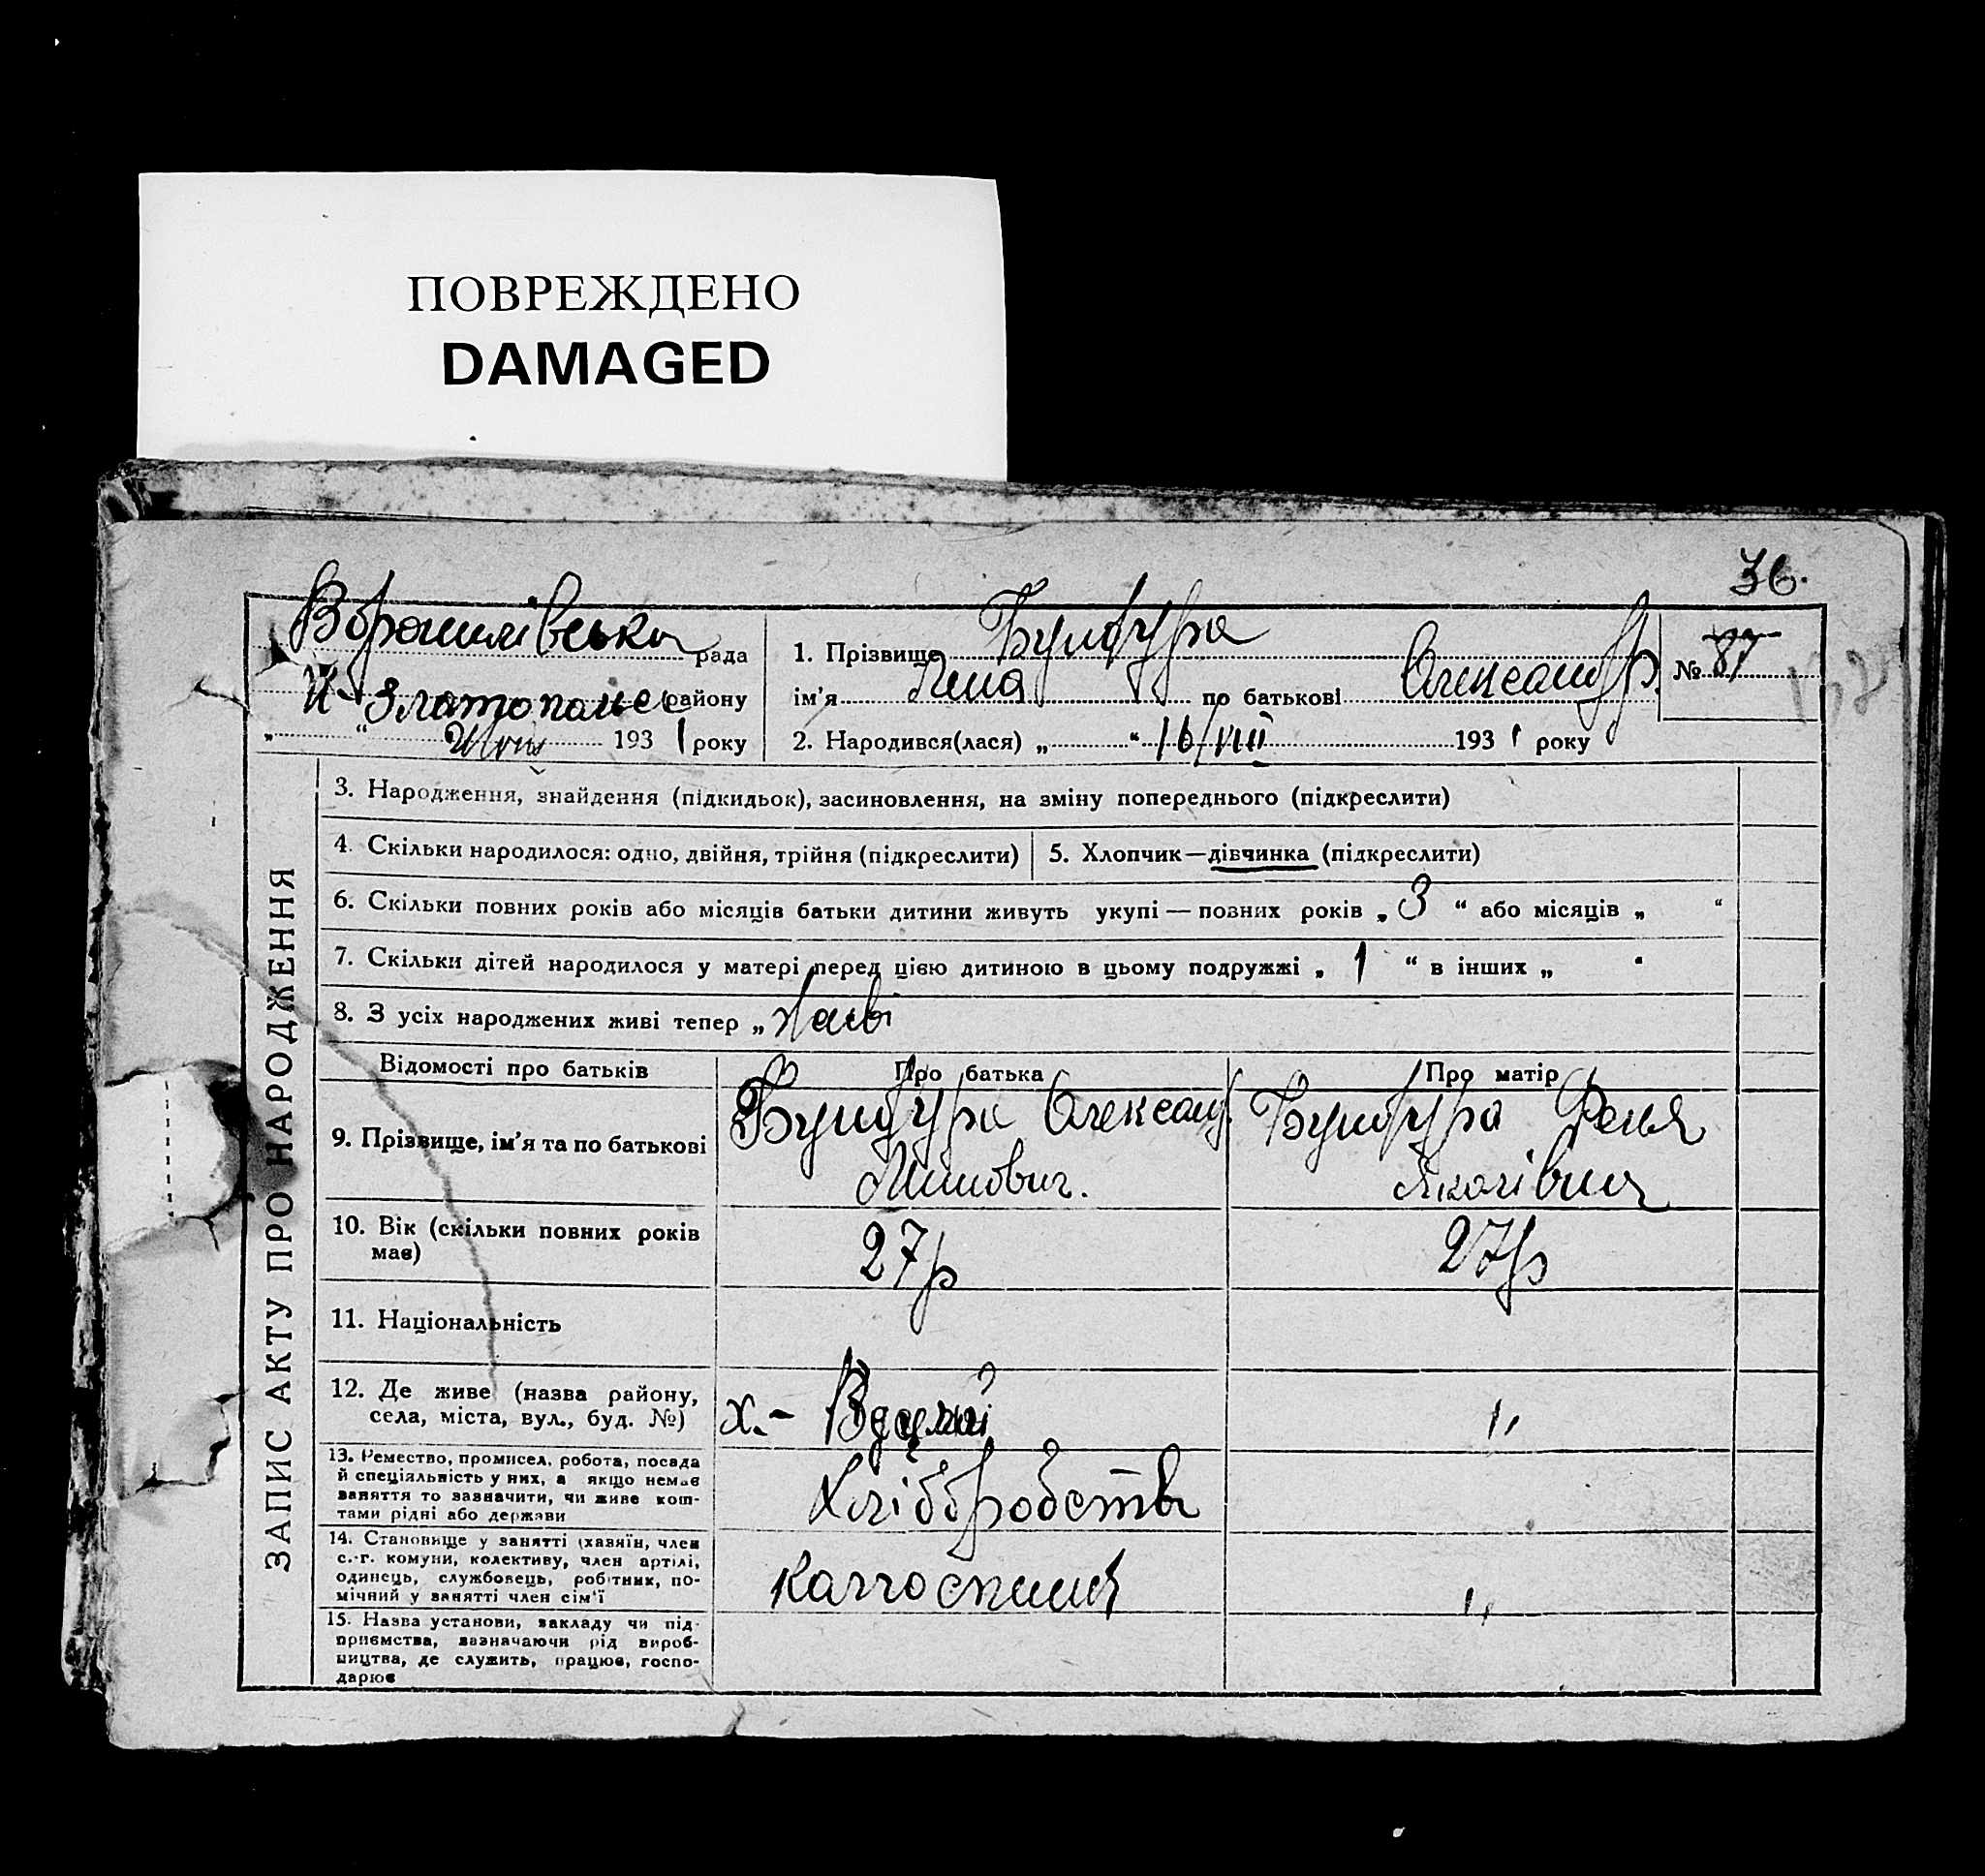 ПОВРЕЖДЕНО
DAMAGED
36.
Ворошилівська рада
Н-Златопольс району
„ “ 1931 року
1. Прізвище Бунбура
ім'я по батькові Олександр.
№ 87
2. Народився(лася) „ “ 16/VIII 1931 року
ЗАПИС АКТУ ПРО НАРОДЖЕННЯ
3. Народження, знайдення (підкидьок), засиновлення, на зміну попереднього (підкреслити)
4. Скільки народилося: одно, двійня, трійня (підкреслити)
5. Хлопчик—дівчинка (підкреслити)
6. Скільки повних років або місяців батьки дитини живуть укупі — повних років „ 3 “ або місяців „ “
7. Скільки дітей народилося у матері перед цією дитиною в цьому подружжі „ 1 “ в інших „ “
8. З усіх народжених живі тепер „
Відомості про батьків
Про батька
Про матір
9. Прізвище, ім'я та по батькові
Бунбура Олександ.
Бунбура Феня
Яковівна
10. Вік (скільки повних років
має)
27р
27р
11. Національність
12. Де живе (назва району,
села, міста, вул., буд. №)
х.-
"
13. Ремество, промисел, робота, посада
й спеціяльність у них, а якщо немає
заняття то зазначити, чи живе кош-
тами рідні або держави
Хліборобств
14. Становище у занятті (хазяїн, член
с.-г. комуни, колективу, член артілі,
одинець, службовець, робітник, по-
мічний у занятті член сім'ї
"
15. Назва установи, закладу чи під-
приємства, зазначаючи рід вироб-
ництва, де служить, працює, госпо-
дарює